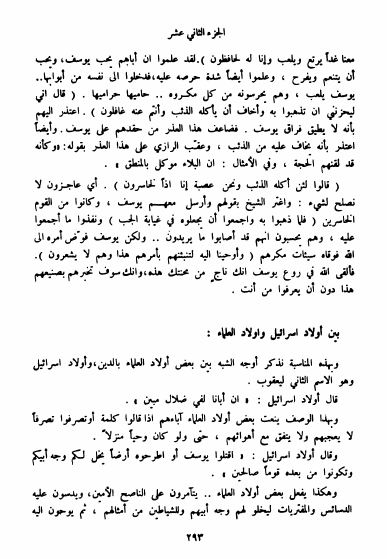 الجزء الثاني عشر
معنا غداً يرتع ويلعب وإنا له لحافظون ) . لقد علموا ان أباهم يحب يوسف ، ويحب
أن يتنعم ويفرح ، وعلموا أيضاً شدة حرصه عليه ، فدخلوا الى نفسه من أبوابها ..
يوسف يلعب ، وهم يحرسونه من كل مكروه .. حاميها حراميها . ( قال اني
ليحزنني ان تذهبوا به وأخاف أن يأكله الذئب وأنتم عنه غافلون ) . اعتذر اليهم
بأنه لا يطيق فراق يوسف . فضاعف هذا العذر من حقدهم على يوسف . وأيضاً
اعتذر بأنه يخاف عليه من الذئب ، وعقب الرازي على هذا العذر بقوله : « وكأنه
قد لقنهم الحجة ، وفي الأمثال : ان البلاء موكل بالمنطق » .
( قالوا لئن أكله الذئب ونحن عصبة إنا اذاً لخاسرون ) . أي عاجزون لا
نصلح لشيء : واغتر الشيخ بقولهم وأرسل معهم يوسف ، وكانوا من القوم
الخاسرين ( فلما ذهبوا به واجمعوا أن يجعلوه في غيابة الجب ) ونفذوا ما أجمعوا
عليه ، وهم يحسبون انهم قد أصابوا ما يريدون .. ولكن يوسف فوّض أمره الى
الله فوقاه سيئات مكرهم ( وأوحينا اليه لتنبئنهم بأمرهم هذا وهم لا يشعرون ) .
فألقى الله في روع يوسف انك ناج من محنتك هذه ، وانك سوف تخبرهم بصنيعهم
هذا دون أن يعرفوا من أنت .
بين أولاد اسرائيل واولاد العلماء :
وبهذه المناسبة نذكر أوجه الشبه بين بعض أولاد العلماء بالدين ، وأولاد اسرائيل
وهو الاسم الثاني ليعقوب .
قال أولاد اسرائيل : « ان أبانا لفي ضلال مبين » .
وبهذا الوصف ينعت بعض أولاد العلماء آباءهم اذا قالوا كلمة أو تصرفوا تصرفاً
لا يعجبهم ولا يتفق مع أهوائهم ، حتى ولو كان وحياً منزلاً .
وقال أولاد اسرائيل : « اقتلوا يوسف أو اطرحوه أرضاً يخل لكم وجه أبيكم
وتكونوا من بعده قوماً صالحين » .
وهكذا يفعل بعض أولاد العلماء .. يتآمرون على الناصح الأمين ، ويدسون عليه
الدسائس والمفتريات ليخلو لهم وجه أبيهم وللشياطين من أمثالهم ، ثم يوحون اليه
٢٩٣